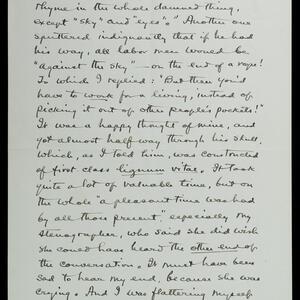 rhyme in the whole damned thing,
except "sky" and "eyes"." Another one
spluttered indignantly that if he had
his way, all labor men would be
"against the sky" — on the end of a rope!
To which I replied: "But then you'd
have to work for a living, instead of
picking it out of other people's pockets!"
It was a happy thought of mine, and
got almost half way through his skull,
which, as I told him, was constructed
of first class lignum vitae. It took
quite a lot of valuable time, but on
the whole "a pleasant time was had
by all those present", especially my
stenographer, who said she did wish
she could have heard the other end of
the conversation. It must have been
sad to hear my end, because she was
crying. And I was flattering myself